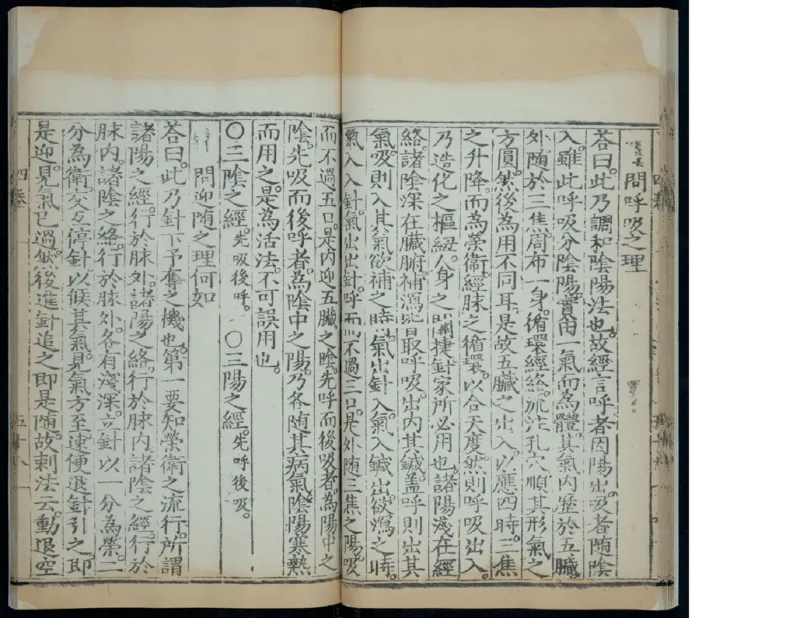 問呼吸之理
答曰。此乃調和陰陽法也。故經言呼者因陽出。吸者隨陰
入。雖此呼吸分陰陽。實由一氣而為體。其氣內歷於五臟。
外隨於三焦。周布一身。循環經絡。流注孔穴。順其形氣之
方圓。然後為用不同耳。是故五臟之出入。以應四時。三焦
之升降。而為榮衛。經脉之循環。以合天度。然則呼吸出入。
乃造化之樞紐。人身之關捷。針家所必用也。諸陽淺在經
絡。諸陰深在臟腑。補瀉皆取呼吸。出內其鍼。盖呼則出其
氣。吸則入其氣。欲補之時。氣出針入。氣入鍼出。欲瀉之時。
氣入入針。氣出出針。呼而不過三口。是外隨三焦之陽。吸
而不過五口。是內迎五臟之陰。先呼而後吸者。為陽中之
陰。先吸而後呼者。為陰中之陽。乃各隨其病氣陰陽寒熱
而用之。是為活法。不可誤用也。
〇三陰之經。先吸後呼。 〇三陽之經。先呼後吸。
問迎隨之理何如
答曰。此乃針下予奪之機也。第一要知榮衛之流行。所謂
諸陽之經。行於脉外。諸陽之絡。行於脉內。諸陰之經。行於
脉內。諸陰之絡。行於脉外。各有淺深。立針以一分為榮。二
分為衛。交互停針。以候其氣。見氣方至。速便退針引之。即
是迎。見氣已過。然後進針追之。即是隨。故刺法云。動退空
四卷
五十八